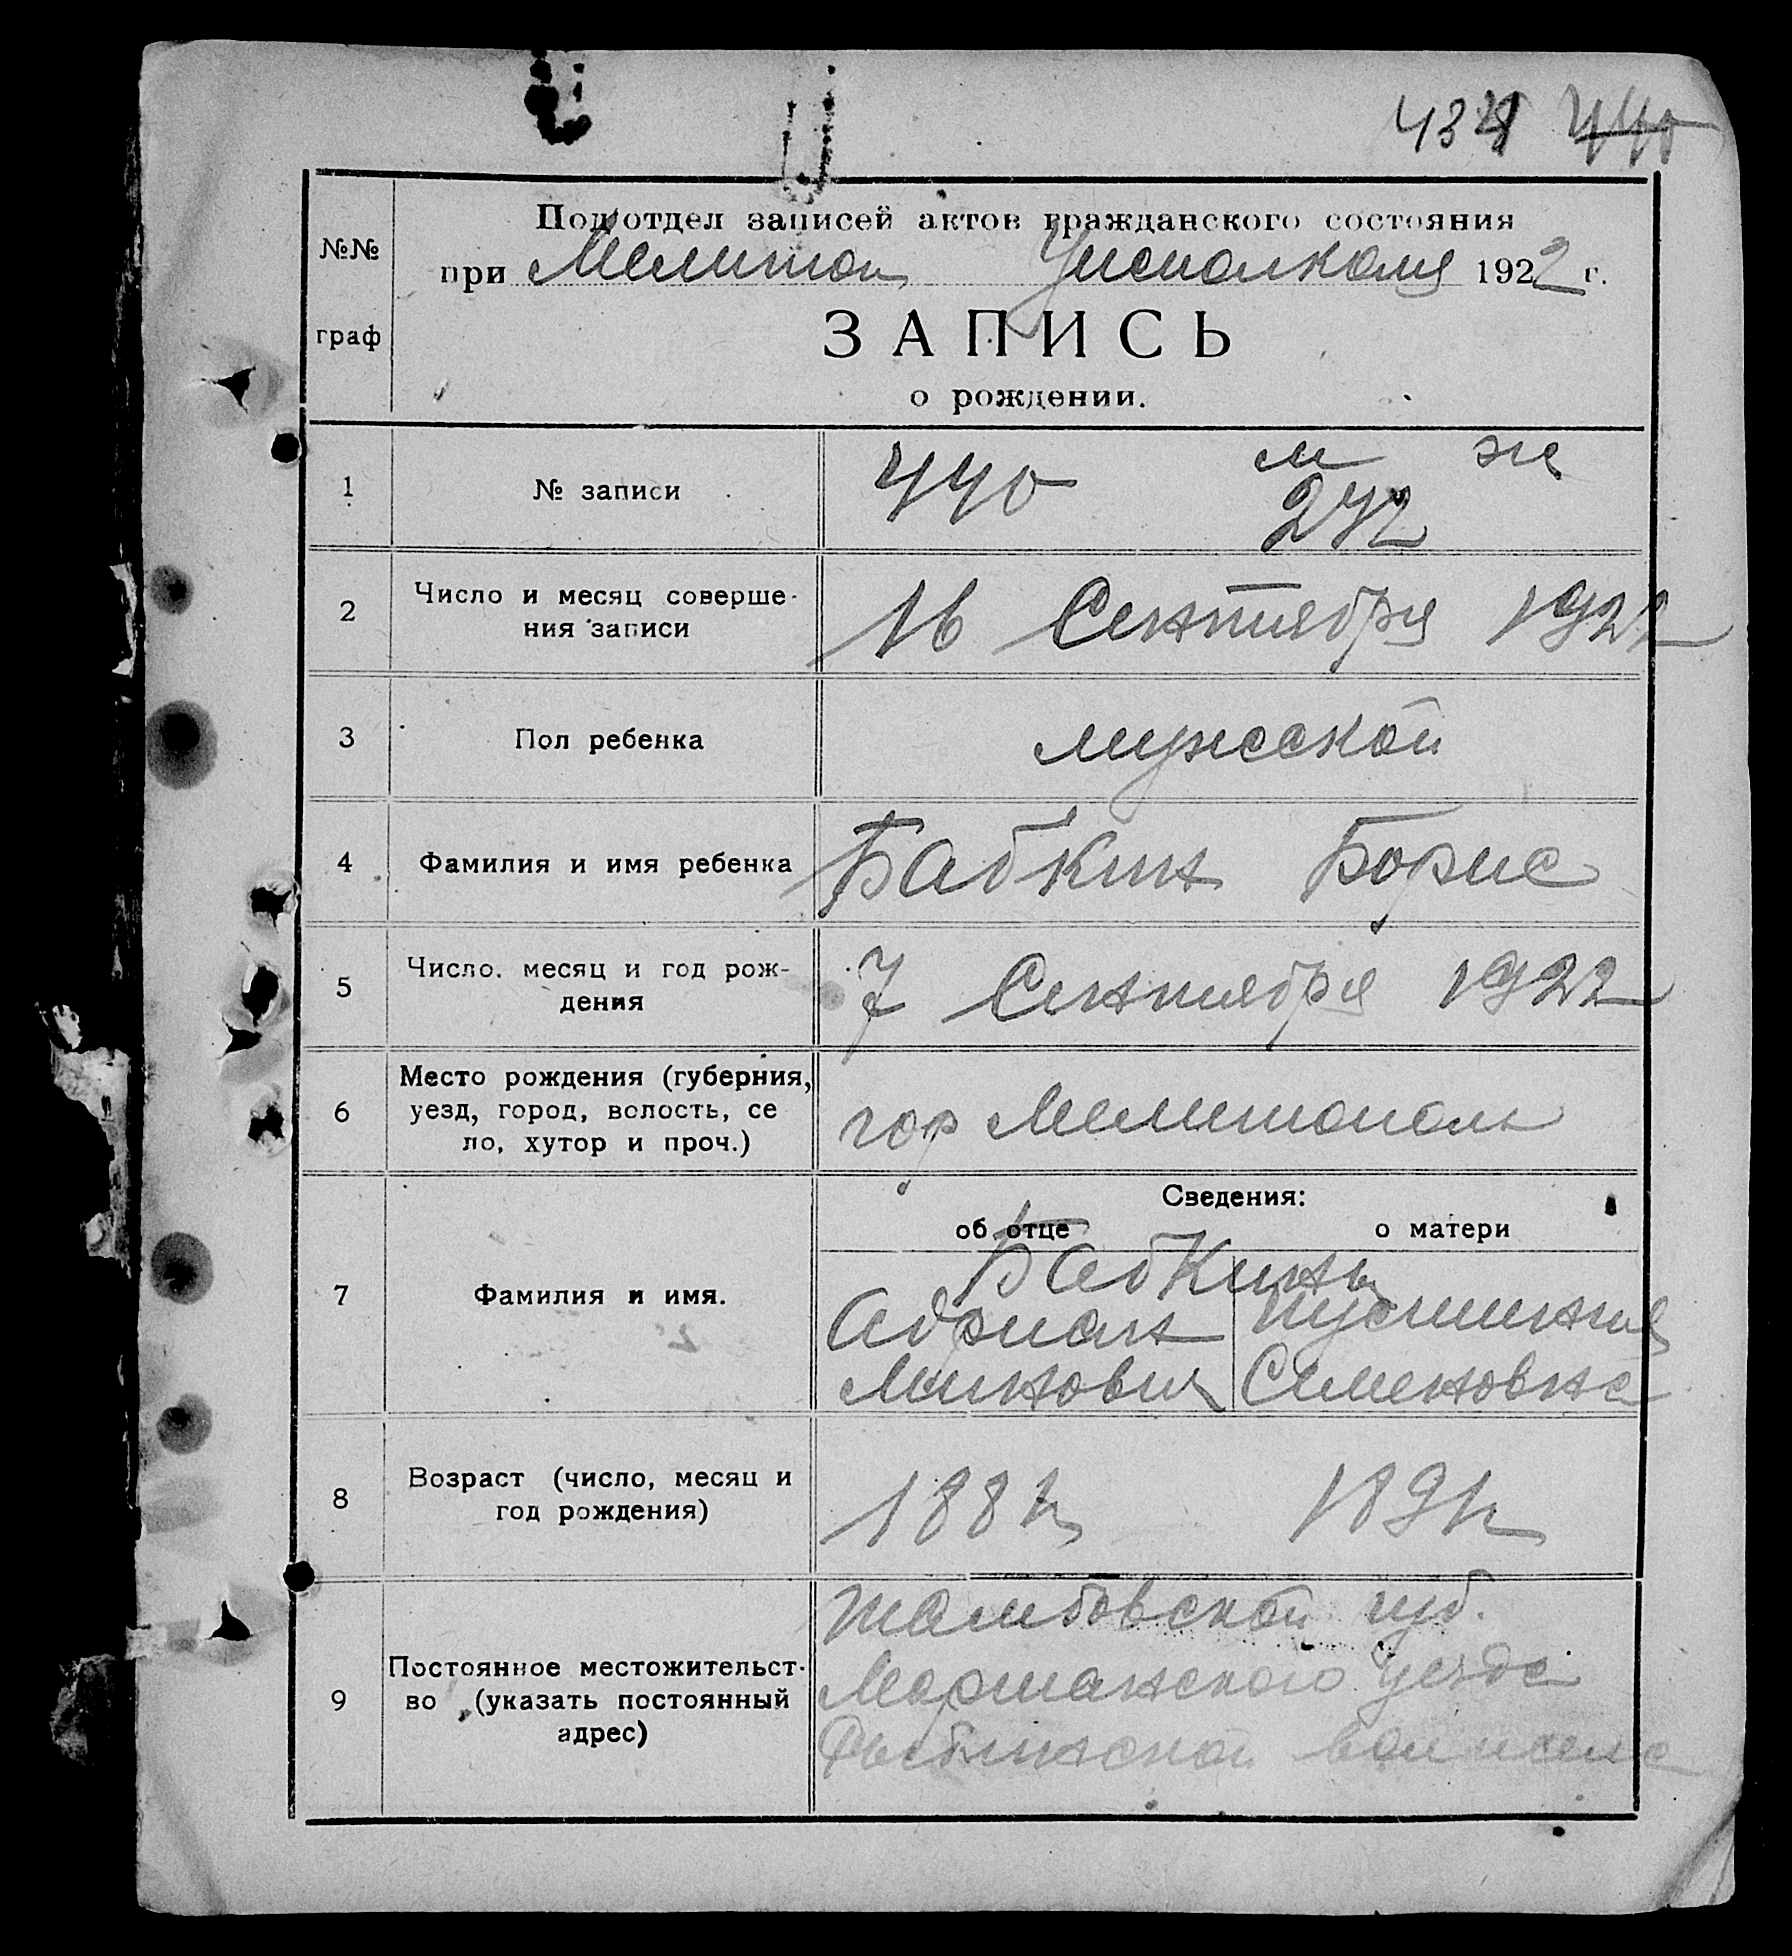 440
№№ граф
Подотдел записей актов гражданского состояния
при Мелитоп Уисполкома 1922 г.
ЗАПИСЬ
о рождении.
1 № записи 440 м ж
272
2 Число и месяц соверше-
ния записи
16 Сентября 1922
3 Пол ребенка мужской
4 Фамилия и имя ребенка Бабкин Борис
5 Число, месяц и год рож-
дения
7 Сентября 1922
6 Место рождения (губерния,
уезд, город, волость, се
ло, хутор и проч.)
гор Мелитополь
Сведения:
об отце о матери
7 Фамилия и имя.
Бабкины
Адриан Иустиния
Минович Семеновна
8 Возраст (число, месяц и
год рождения)
9 Постоянное местожительст-
во (указать постоянный
адрес)
Тамбовской губ.
Моршанского уезда